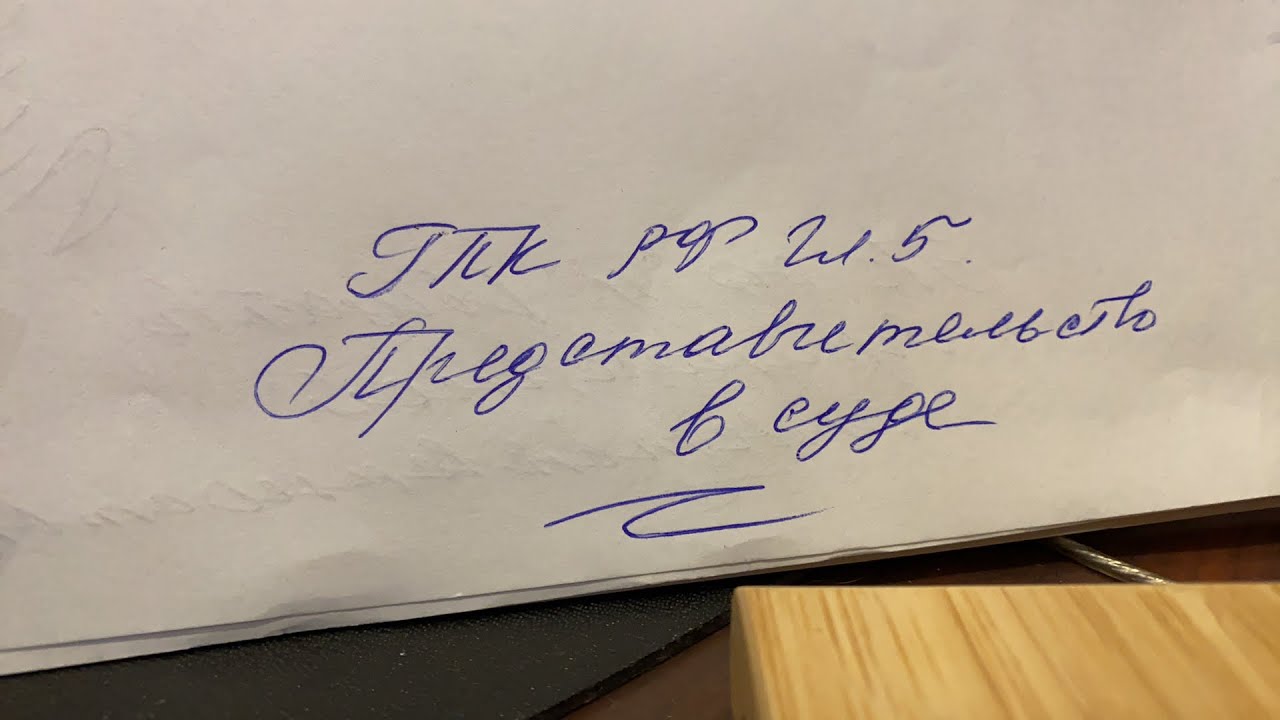 ГПК РФ Гл. 5.
Представительство
в суде